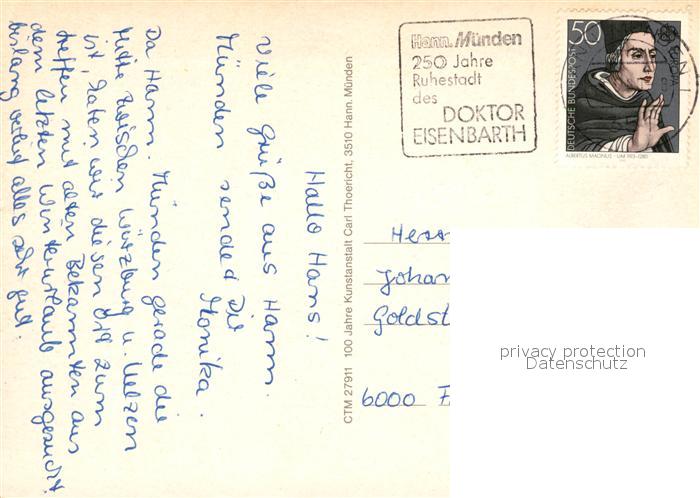 Hann. Münden
250 Jahre
Ruhestadt
des
DOKTOR
EISENBARTH
50
DEUTSCHE BUNDESPOST
ALBERTUS MAGNUS · UM 1193–1280
Hallo Hans!
Viele Grüße aus Hann.
Münden sendet Dir
Monika.
Da Hann. Münden gerade die
Mitte zwischen Würzburg u. Uelzen
ist, haben wir diesen Ort zum
treffen mit alten Bekannten aus
dem letzten Winterurlaub ausgesucht.
Bislang verlief alles sehr gut.
CTM 27911 100 Jahre Kunstanstalt Carl Thoericht, 3510 Hann. Münden
Herr
Johan
Goldst
6000 F
privacy protection
Datenschutz